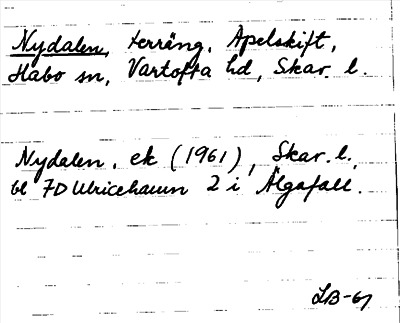 Nydalen, terräng, Apelskift,
Habo sn, Vartofta hd, Skar. l.
Nydalen, ek (1961), Skar. l.,
bl 7D Ulricehamn 2 i Älgafall.
LB-61